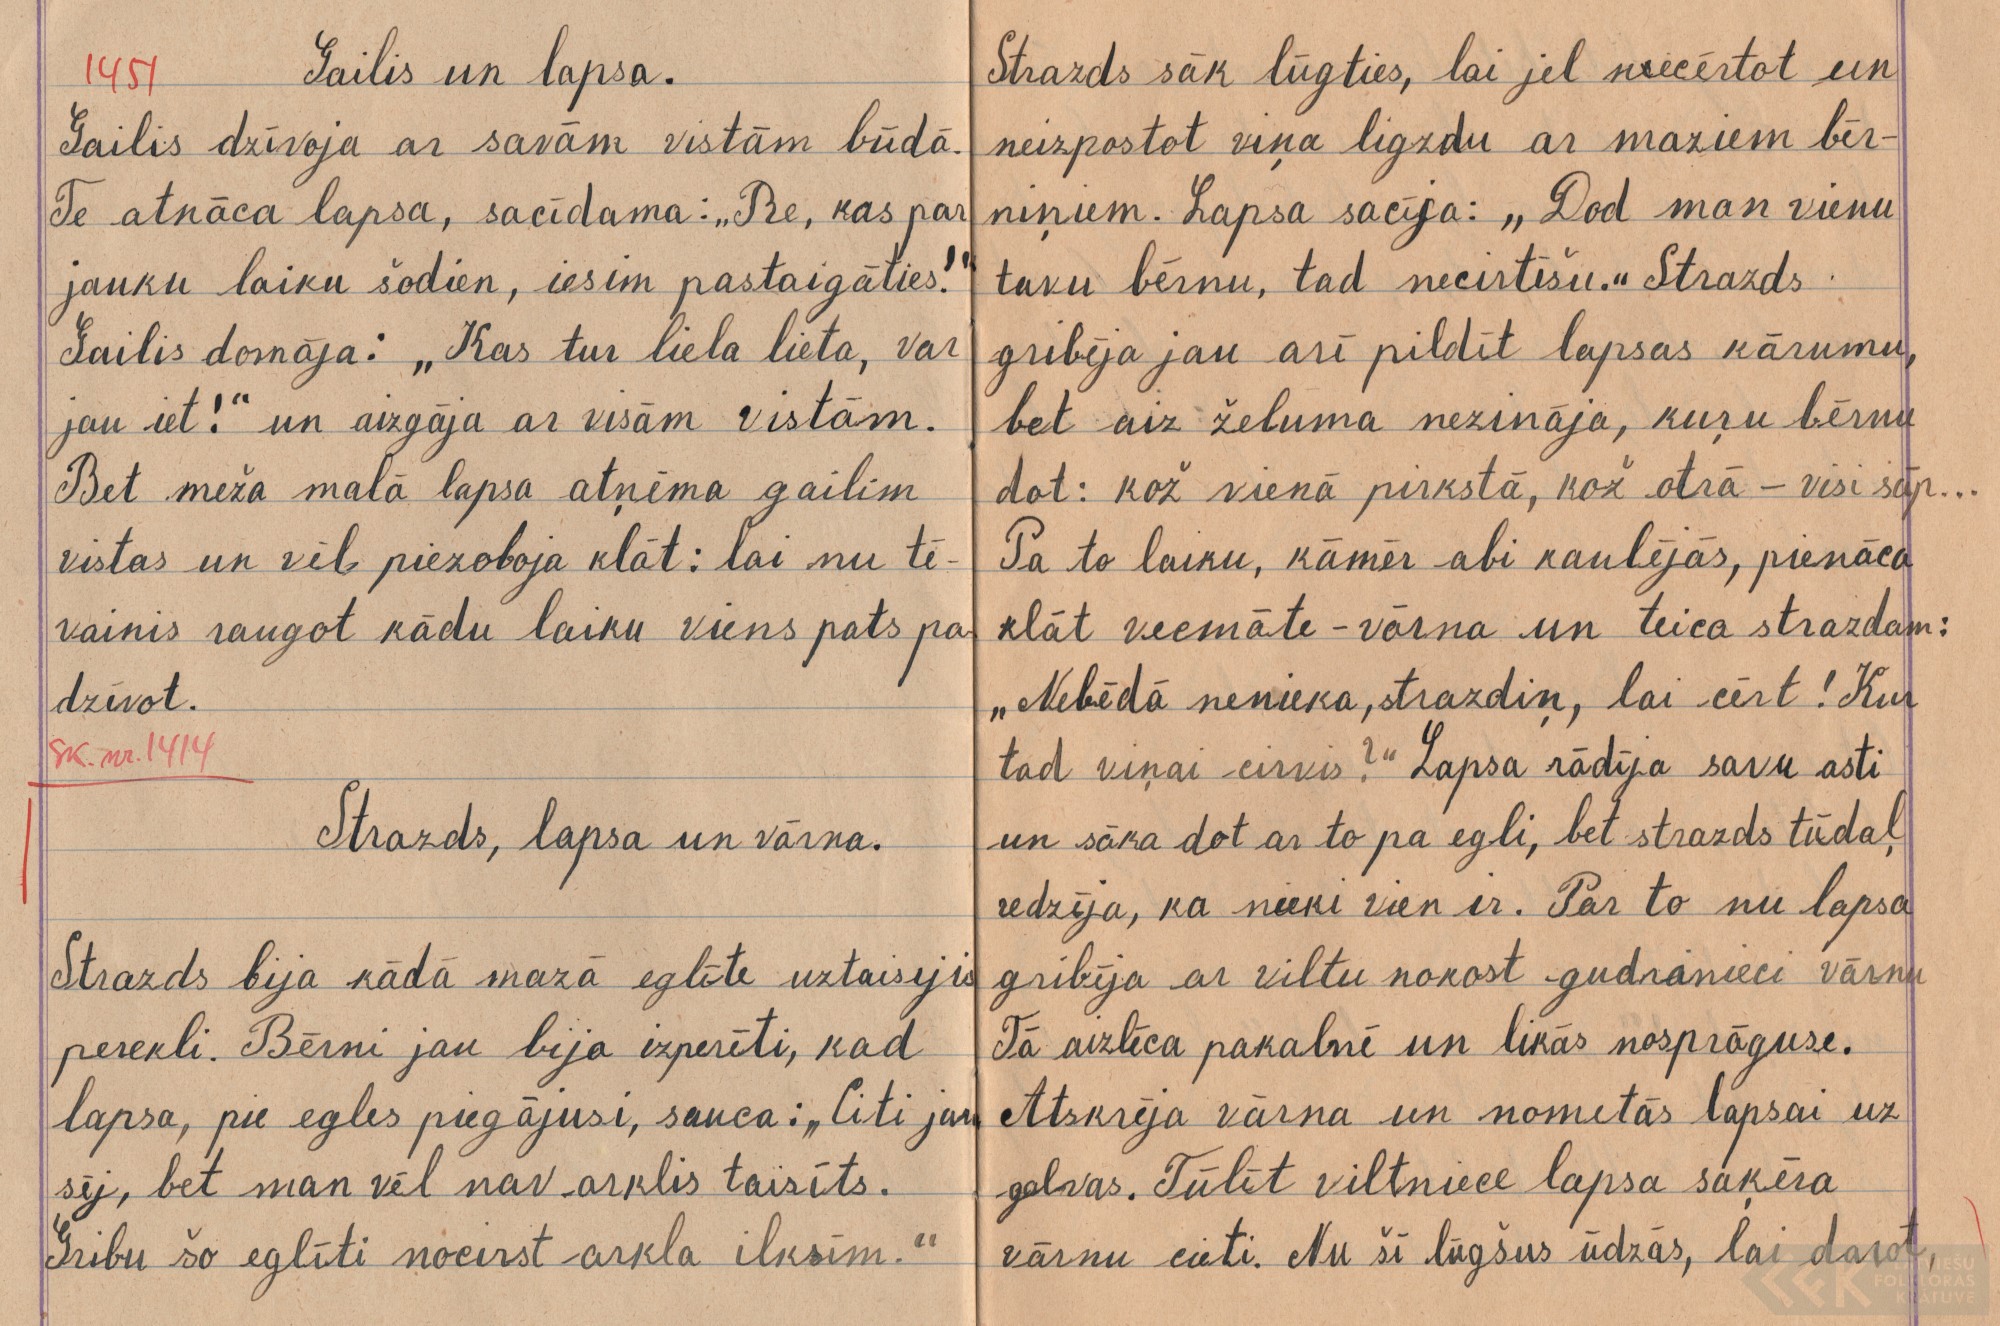 1451
Gailis un lapsa.
Gailis dzīvoja ar savām vistām būdā.
Te atnāca lapsa, sacīdama: „Re, kas par
jauku laiku šodien, iesim pastaigāties!"
Gailis domāja: „Kas tur liela lieta, var
jau iet!" un aizgāja ar visām vistām.
Bet meža malā lapsa atņēma gailim
vistas un vēl piezoboja klāt: lai nu tē-
vainis raugot kādu laiku viens pats pa
dzīvot.
sk. nr. 1414
Strazds, lapsa un vārna.
Strazds bija kādā mazā eglītē uztaisējis
perekli. Bērni jau bija izperēti, kad
lapsa, pie egles piegājusi, sauca: „Citi jau
sēj, bet man vēl nav arklis taisīts.
Gribu šo eglīti nocirst arkla ilksīm."
Strazds sāk lūgties, lai jel necērtot un
neizpostot viņa ligzdu ar maziem bēr-
niņiem. Lapsa sacīja: „Dod man vienu
tavu bērnu, tad necirtīšu." Strazds
gribēja jau arī pildīt lapsas kārumu,
bet aiz želuma nezināja, kuŗu bērnu
dot: kož vienā pirkstā, kož otrā – visi sāp...
Pa to laiku, kāmēr abi kaulējās, pienāca
klāt vecmāte-vārna un teica strazdam:
„Nebēdā nenieka, strazdiņ, lai cērt! Kur
tad viņai cirvis?" Lapsa rādīja savu asti
un sāka dot ar to pa egli, bet strazds tūdaļ
redzēja, ka nieki vien ir. Par to nu lapsa
gribēja ar viltu nokost gudrānieci vārnu
Tā aizlēca pakalnē un likās nosprāguse.
Atskrēja vārna un nometās lapsai uz
galvas. Tūlīt viltniece lapsa saķēra
vārnu cieti. Nu šī lūgšus ūdzās, lai darot,
FOLKLORAS
KRĀTUVE